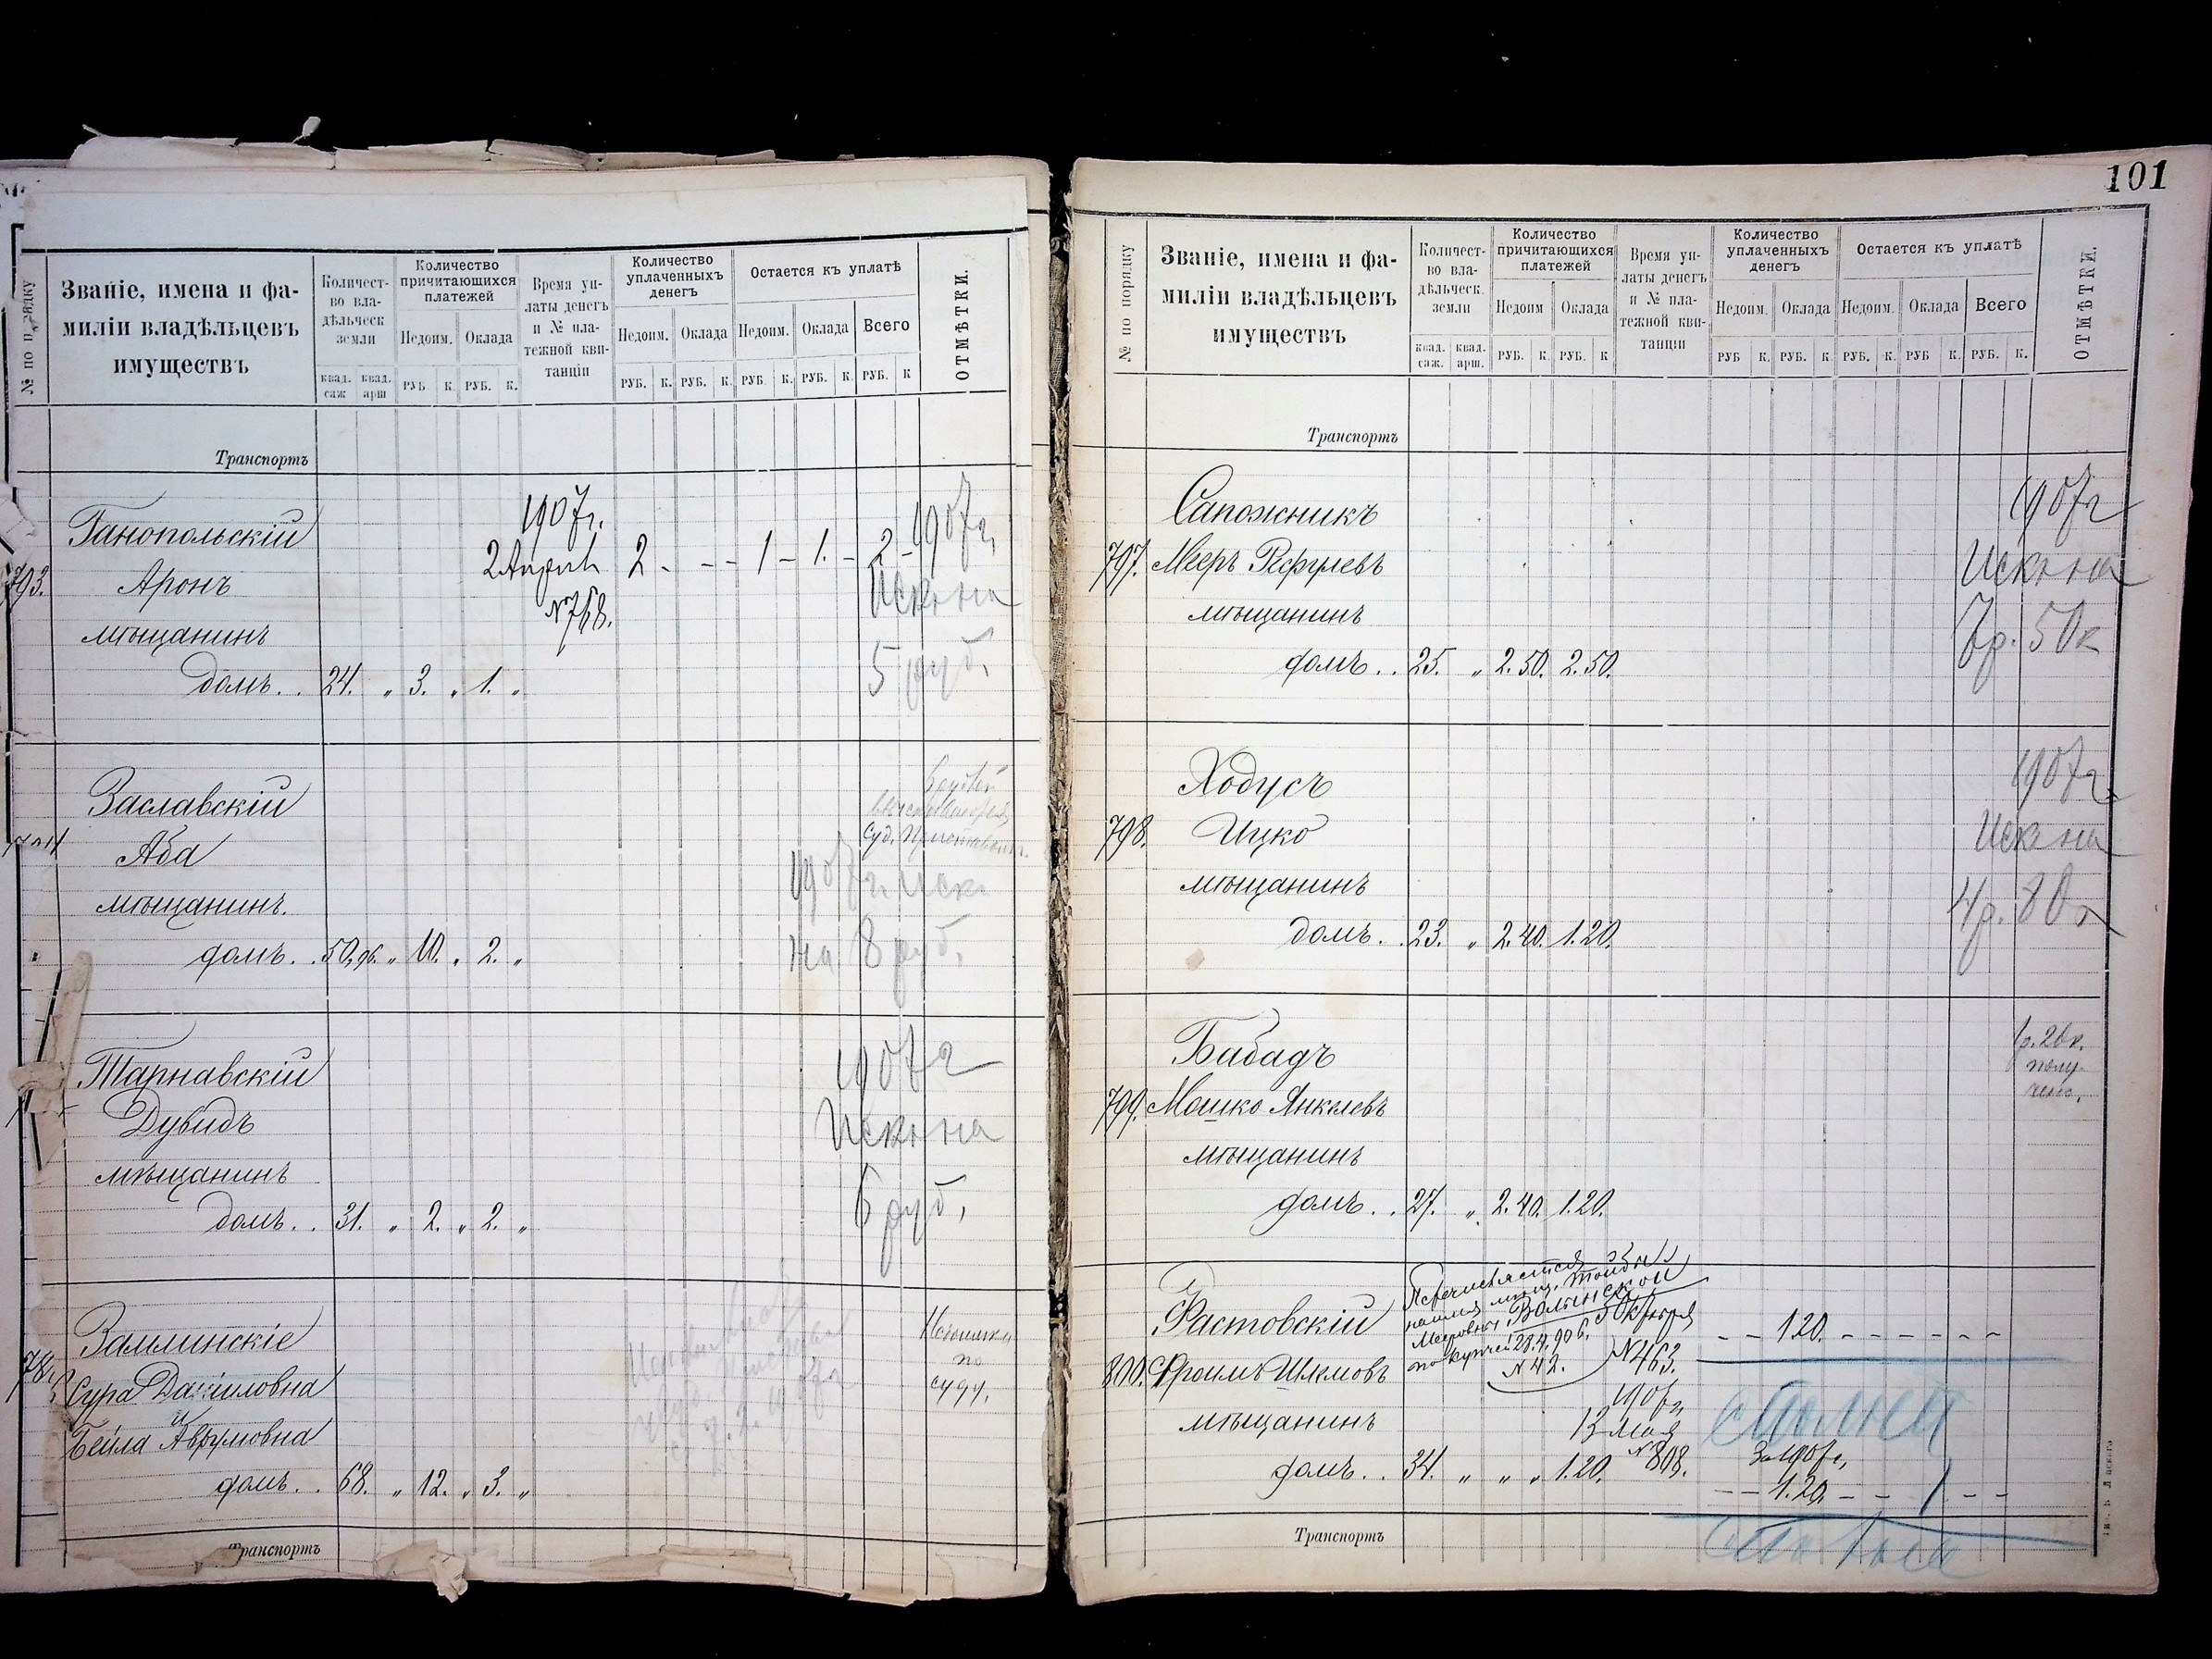 № по порядку
Званіе, имена и фа-
миліи владѣльцевъ
имуществъ
Количест-
во вла-
дѣльческ
земли
квад. саж
квад. арш
Количество
причитающихся
платежей
Недоим.
Оклада
РУБ К. РУБ. К.
Время уп-
латы денегъ
и № пла-
тежной кви-
танціи
Количество
уплаченныхъ
денегъ
Недоим.
Оклада
РУБ. К. РУБ. К.
Остается къ уплатѣ
Недоим.
Оклада
Всего
РУБ К. РУБ. К. РУБ. К
ОТМѢТКИ.
Транспортъ
Ганопольскій
793. Аронъ
мѣщанинъ
домъ. . 24. „ 3. „ 1. „
1907г.
2 Августа 2 - - - 1 - 1. - 2 -
№768.
1907г,
Искъ на
5 руб.
Заславскій
Аба
мѣщанинъ.
домъ. . 50,96. „ 10. „ 2. „
Суд. Приставомъ.
1907г. Искъ
на 8 руб.
Тарнавскій
Дувидъ
мѣщанинъ
домъ. . 31. „ 2. „ 2. „
1907г
Искъ на
6 руб,
Заллинскіе
Сура Даниловна
и
Бейла Аврумовна
домъ. . 68. „ 12. „ 3. „
Недоимка
по
суду.
Транспортъ
101
№ по порядку
Званіе, имена и фа-
миліи владѣльцевъ
имуществъ
Количест-
во вла-
дѣльческ.
земли
квад. саж.
квад. арш.
Количество
причитающихся
платежей
Недоим
Оклада
РУБ. К. РУБ. К
Время уп-
латы денегъ
и № пла-
тежной кви-
танціи
Количество
уплаченныхъ
денегъ
Недоим.
Оклада
РУБ К. РУБ. К.
Остается къ уплатѣ
Недоим.
Оклада
Всего
РУБ. К. РУБ К. РУБ. К.
ОТМѢТКИ.
Транспортъ
Сапожникъ
797. Мееръ Рефулевъ
мѣщанинъ
домъ. . 25. „ 2.50. 2.50.
1907г
Искъ на
7р. 50к
Ходусъ
798. Ицко
мѣщанинъ
домъ. . 23. „ 2.40. 1.20.
1907г.
Искъ на
4р. 80к
Бабадъ
799. Мошко Янкелевъ
мѣщанинъ
домъ. . 27. „ 2.40. 1.20.
1р. 20к.
полу-
чено.
Растовскій
800. Фроимъ Шлемовъ
мѣщанинъ
домъ. . 34. „ „ „ 1.20.
Перечисляется
на имя мѣщ. Тойбы
Мееровны Волынской
по купчей 28.4.906.
№ 42.
3 Октября
№463.
- - 1.20. - - - - - -
1907г,
13 Мая
№808.
За 1907г,
- - 1.20. - - - -
Транспортъ